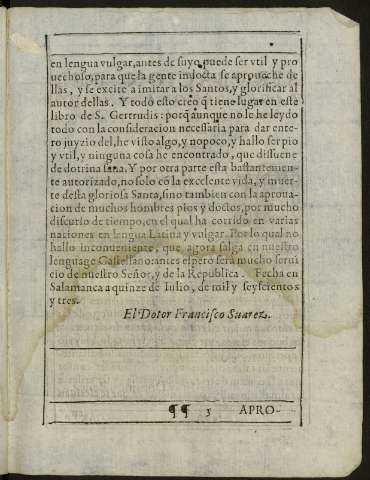 en lengua vulgar, antes de suyo puede ser vtil y pro
uechoso, para que la gente indocta se aproueche de
llas, y se excite a imitar a los Santos, y glorificar al
autor dellas. Y todo esto creo q̃ tiene lugar en este
libro de S. Gertrudis: porq̃ aunque no le he leydo
todo con la consideracion necessaria para dar ente-
ro juyzio del, he visto algo, y no poco, y hallo ser pio
y vtil, y ninguna cosa he encontrado, que dissuene
de dotrina sana. Y por otra parte esta bastantemen-
te autorizado, no solo cõ la excelente vida, y muer-
te desta gloriosa Santa, sino tambien con la aproua-
cion de muchos hombres pios y doctos, por mucho
discurso de tiempo, en el qual ha corrido en varias
naciones en lengua Latina y vulgar. Por lo qual no
hallo inconueniente, que agora salga en nuestro
lenguage Castellano: antes espero será mucho serui
cio de nuestro Señor, y de la Republica. Fecha en
Salamanca a quinze de Iulio, de mil y seyscientos
y tres.
El Dotor Francisco Suarez.
¶¶ 3 APRO-